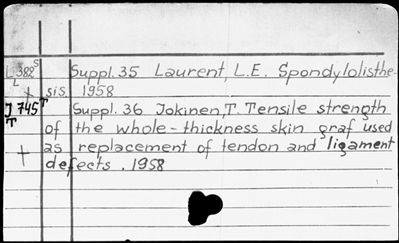 L 382 S Suppl. 35 Laurent, L.E. Spondylolisthe-
L + sis 1958
J 745 T Suppl. 36 Jokinen, T. Tensile strength
T of the whole-thickness skin graf used
+ as replacement of tendon and ligament
defects. 1958